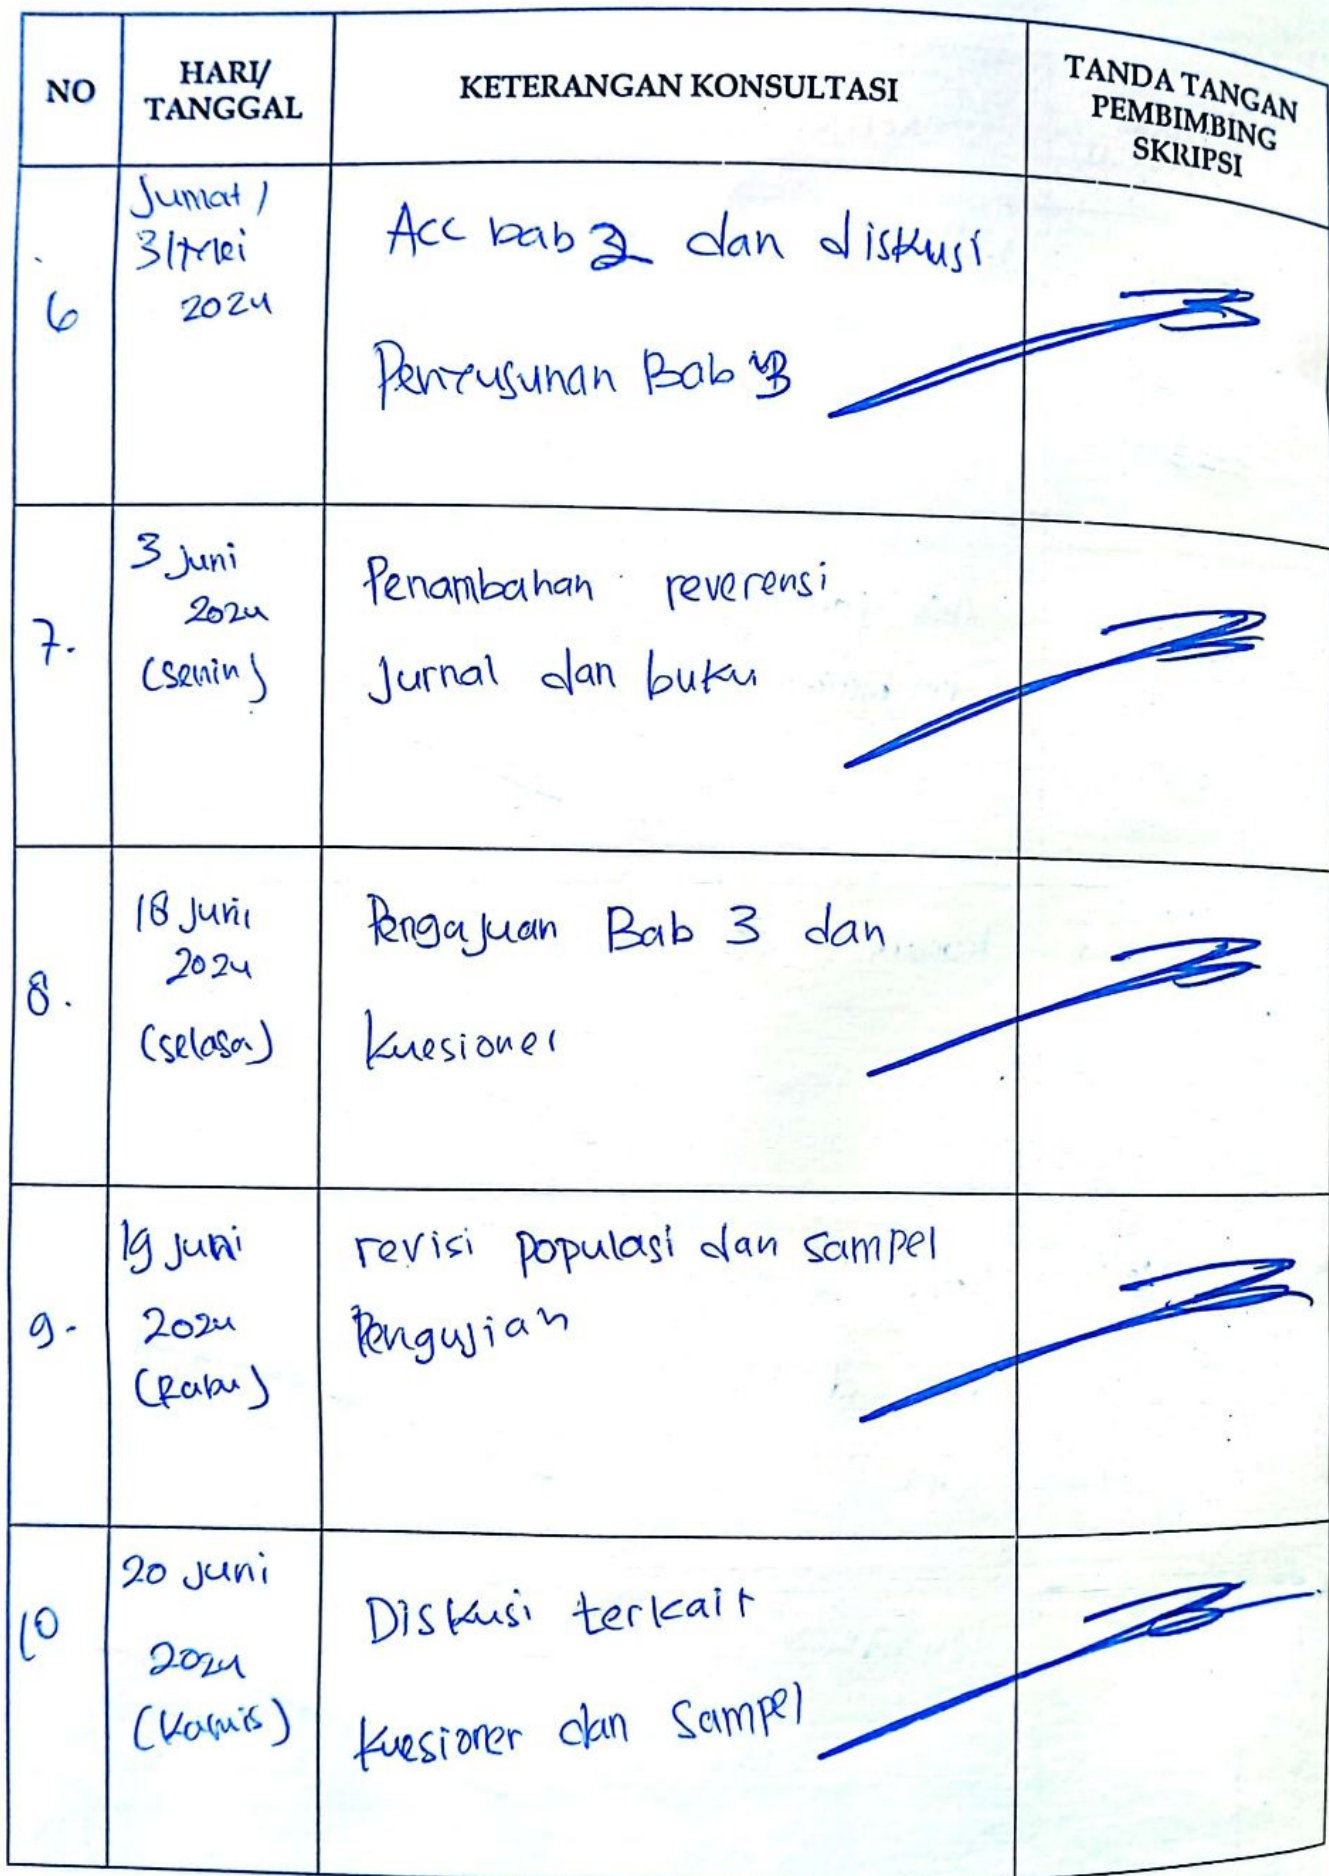 NO
HARI/
TANGGAL
KETERANGAN KONSULTASI
TANDA TANGAN
PEMBIMBING
SKRIPSI
6
Jumat /
31 Mei
2024
Acc bab 2 dan diskusi
Penyusunan Bab 3
7.
3 Juni
2024
(senin)
Penambahan reverensi
Jurnal dan buku
8.
18 Juni
2024
(selasa)
Pengajuan Bab 3 dan
kuesioner
9.
19 Juni
2024
(Rabu)
revisi populasi dan sampel
Pengujian
10
20 Juni
2024
(Kamis)
Diskusi terkait
kuesioner dan Sampel